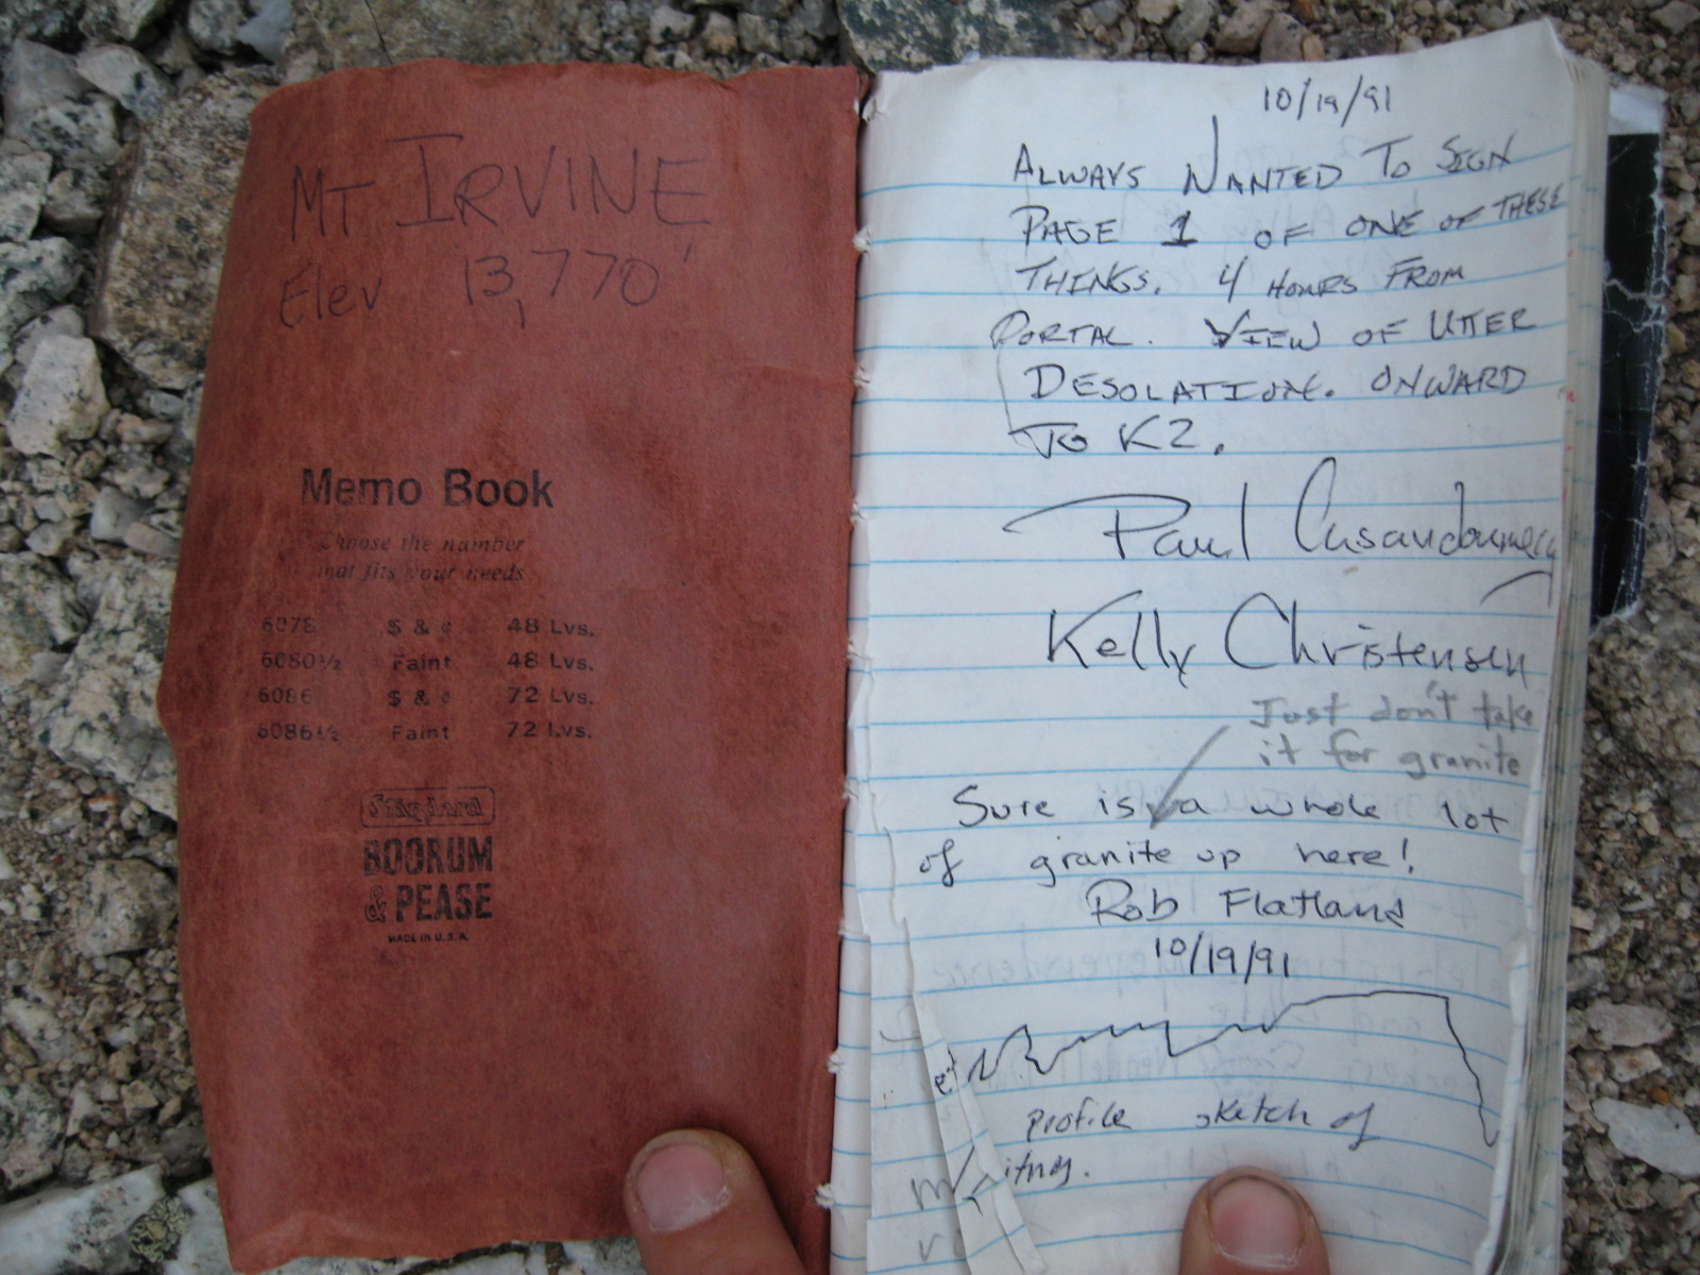 MT IRVINE
Elev 13,770'
Memo Book
Choose the number
that fits your needs
6078 $ & ¢ 48 Lvs.
6080½ Faint 48 Lvs.
6086 $ & ¢ 72 Lvs.
6086½ Faint 72 Lvs.
Standard
BOORUM
& PEASE
MADE IN U.S.A.
10/19/91
ALWAYS WANTED TO SIGN
PAGE 1 OF ONE OF THESE
THINGS. 4 HOURS FROM
PORTAL. VIEW OF UTTER
DESOLATION. ONWARD
TO K2.
Paul
Kelly Christensen
Just don't take
it for granite
Sure is a whole lot
of granite up here!
Rob Flatland
10/19/91
profile sketch of